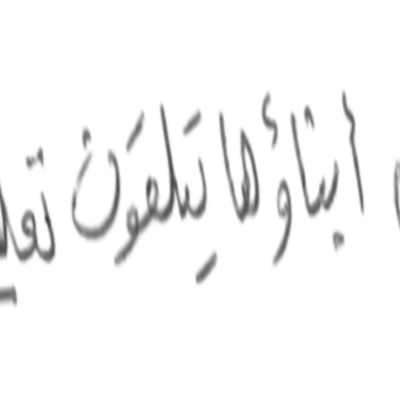 أبناؤها يتلقون تعلي